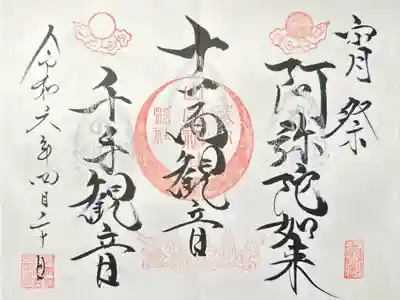 宵祭
阿弥陀如来
十一面観音
千手観音
令和六年四月二十日